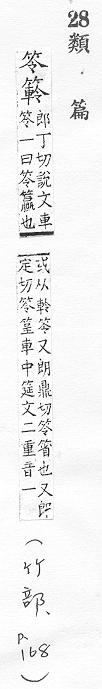 28
類篇
笭䉹
郎丁切說文車
笭一曰笭籯也
或从軨笭又朗鼎切笭箵也又郎
定切笭篂車中筵文二重音一
(竹部、
p.
168
)